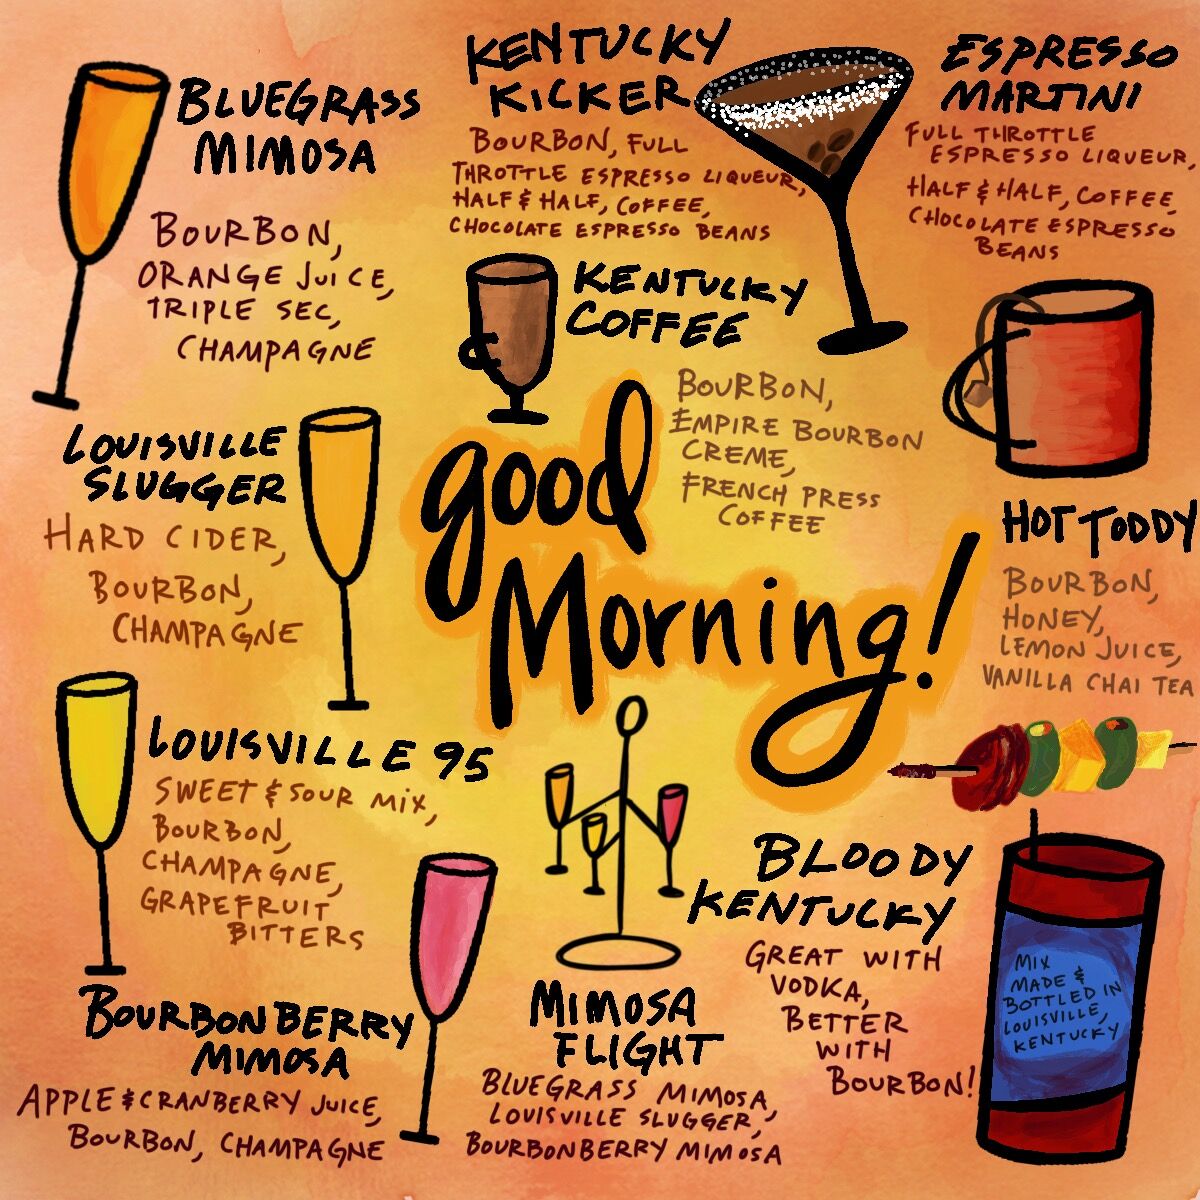 BLUEGRASS
MIMOSA
BOURBON,
ORANGE JUICE,
TRIPLE SEC,
CHAMPAGNE
KENTUCKY
KICKER
BOURBON, FULL
THROTTLE ESPRESSO LIQUEUR,
HALF & HALF, COFFEE,
CHOCOLATE ESPRESSO BEANS
ESPRESSO
MARTINI
FULL THROTTLE
ESPRESSO LIQUEUR,
HALF & HALF, COFFEE,
CHOCOLATE ESPRESSO
BEANS
KENTUCKY
COFFEE
BOURBON,
EMPIRE BOURBON
CREME,
FRENCH PRESS
COFFEE
LOUISVILLE
SLUGGER
HARD CIDER,
BOURBON,
CHAMPAGNE
good
Morning!
HOT TODDY
BOURBON,
HONEY,
LEMON JUICE,
VANILLA CHAI TEA
LOUISVILLE 95
SWEET & SOUR MIX,
BOURBON,
CHAMPAGNE,
GRAPEFRUIT
BITTERS
BLOODY
KENTUCKY
GREAT WITH
VODKA,
BETTER
WITH
BOURBON!
MIX
MADE &
BOTTLED IN
LOUISVILLE,
KENTUCKY
BOURBONBERRY
MIMOSA
APPLE & CRANBERRY JUICE,
BOURBON, CHAMPAGNE
MIMOSA
FLIGHT
BLUEGRASS MIMOSA,
LOUISVILLE SLUGGER,
BOURBONBERRY MIMOSA